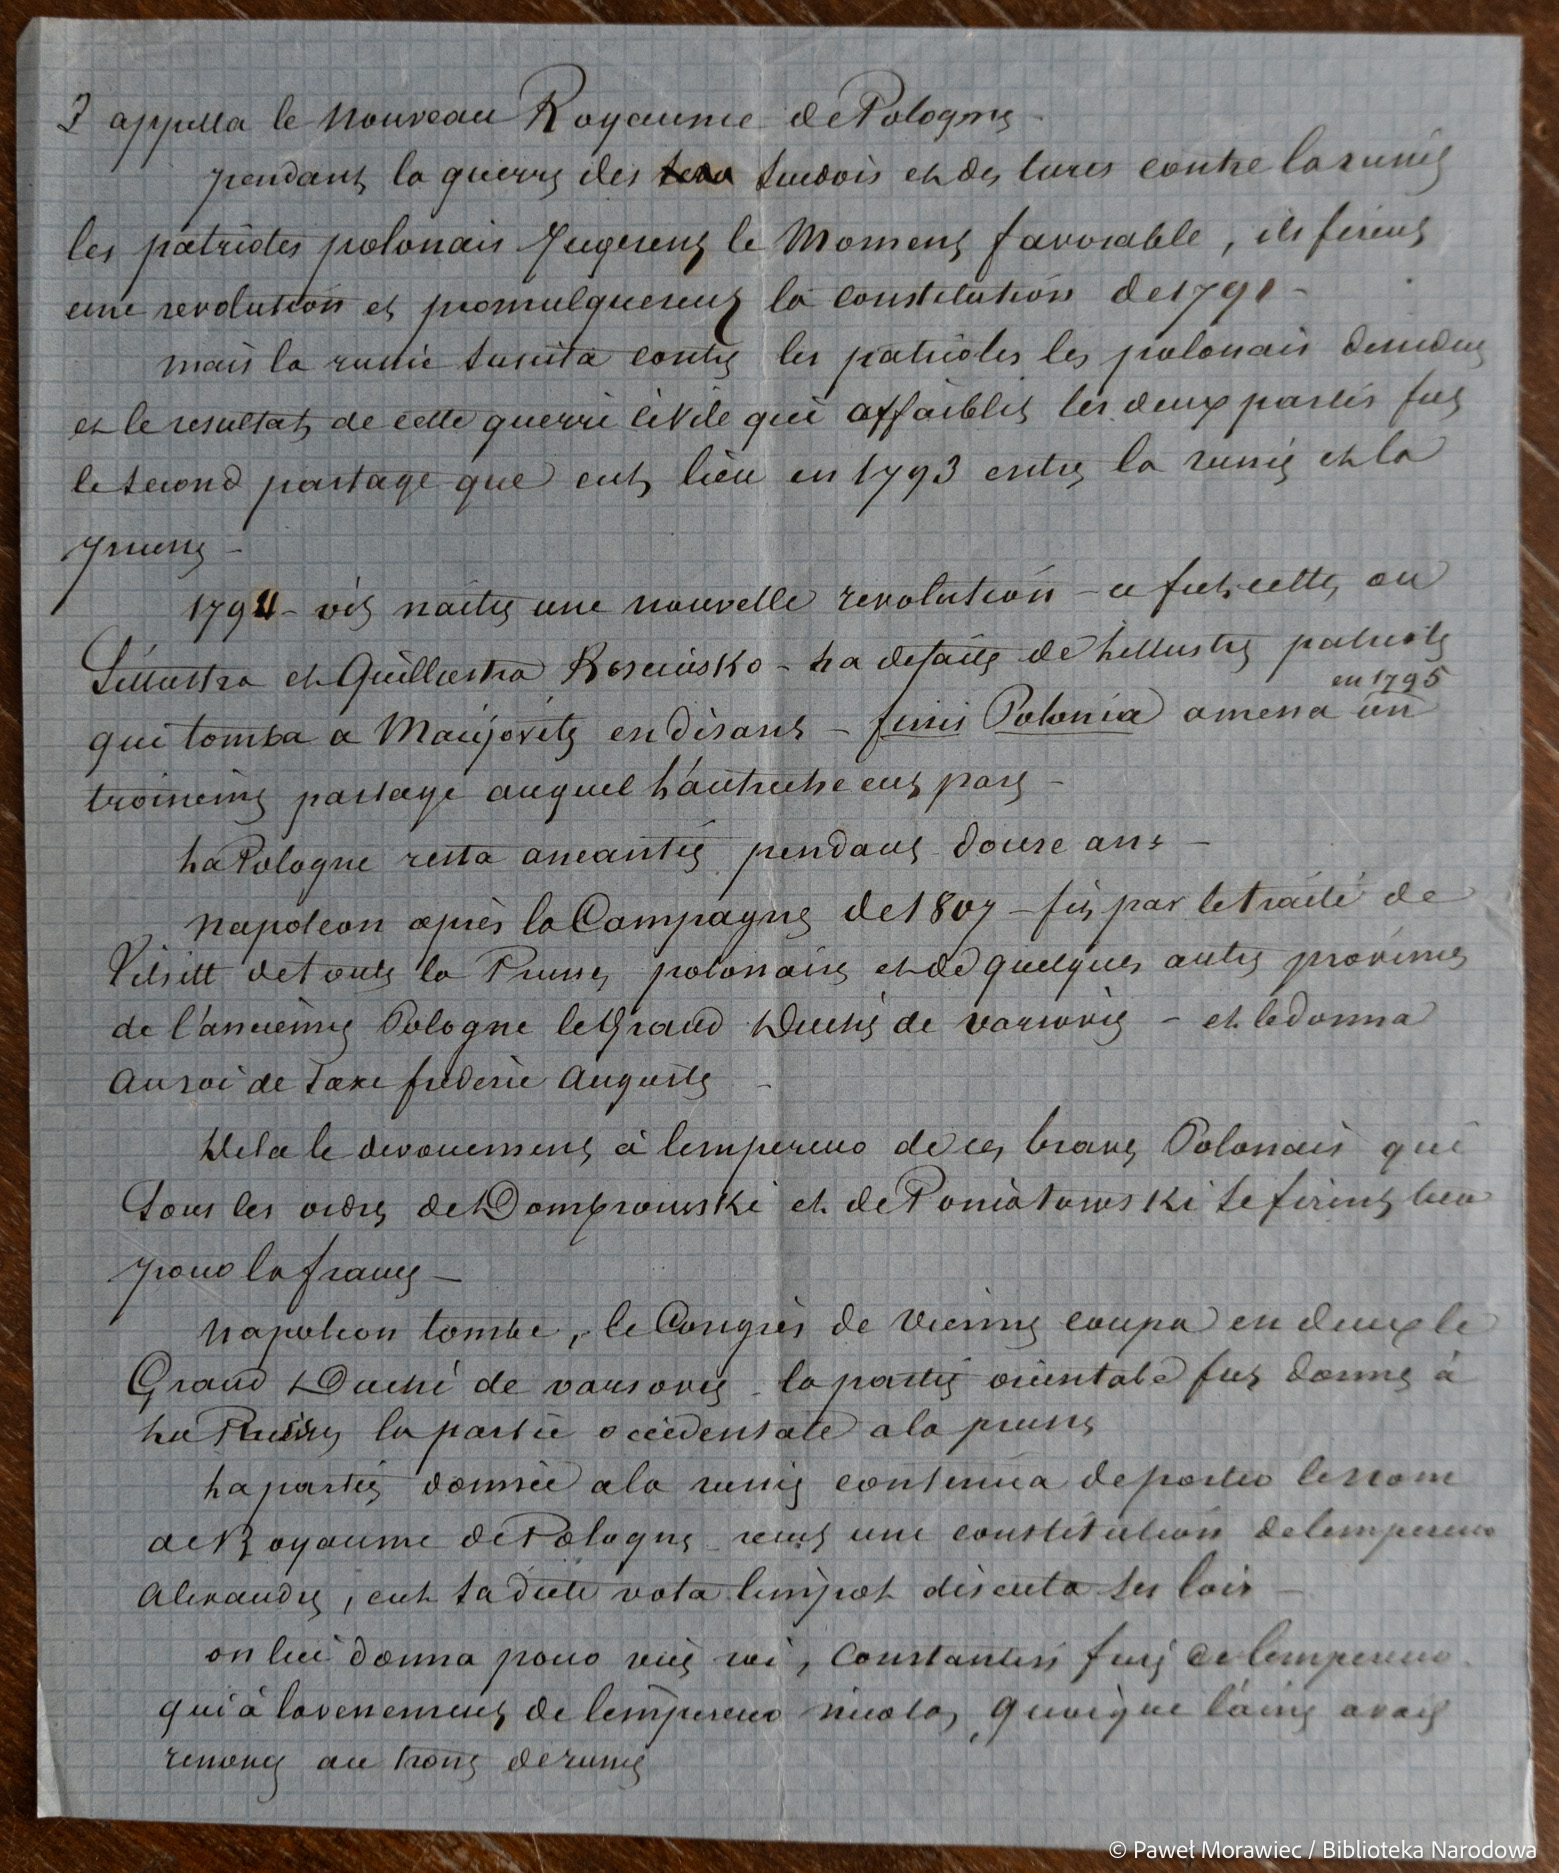 S appella le nouveau Royaume de Pologne -
pendant la guerre des suedois et des turcs contre la russie
les patriotes polonais Jugerent le Moment favorable, ils firent
une revolution et promulguerent la constitution de 1791 -
mais la russie suscita contre les patriotes les polonais dissidents
et le resultat de cette guerre civile qui affaiblit les deux partis fut
le second partage que eut lieu en 1793 entre la russie et la
prusse -
1794 - vit naitre une nouvelle revolution - ce fut cette ou
S'illustra et Guillustra Kosciusko - La defaite de L'illustre patriote
en 1795
qui tomba a Maijovits en disant - finis Polonia amena un
troisieme partage auquel L'autriche eut part -
La Pologne resta aneantie pendant douse ans -
Napoleon après la Campagne de 1807 - fit par le traité de
Tilsitt de toute la Prusse polonaise et de quelques autres provinces
de l'ancienne Pologne le Grand Duché de varsovie - et le donna
Au roi de Saxe frederic Auguste -
De la le devouement à lempereur de ces braves Polonais qui
Sous les ordres de Dombrowski et de Poniatowski se firent tuer
pour la france -
Napoleon tombé, le Congrès de Vienne coupa en deux le
Grand Duché de varsovie - la partie orientale fut donnée à
La Russie la partie occidentale a la prusse
La partie donnée a la russie continua de porter le nom
de Royaume de Pologne reçut une constitution de lempereur
Alexandre, eut sa diete vota limpot discuta ses lois -
on lui donna pour vice roi, Constantin frere de lempereur
qui à lavenement de lempereur nicolas, quoique l'ainé avait
renoncé au trone de russie
© Paweł Morawiec / Biblioteka Narodowa